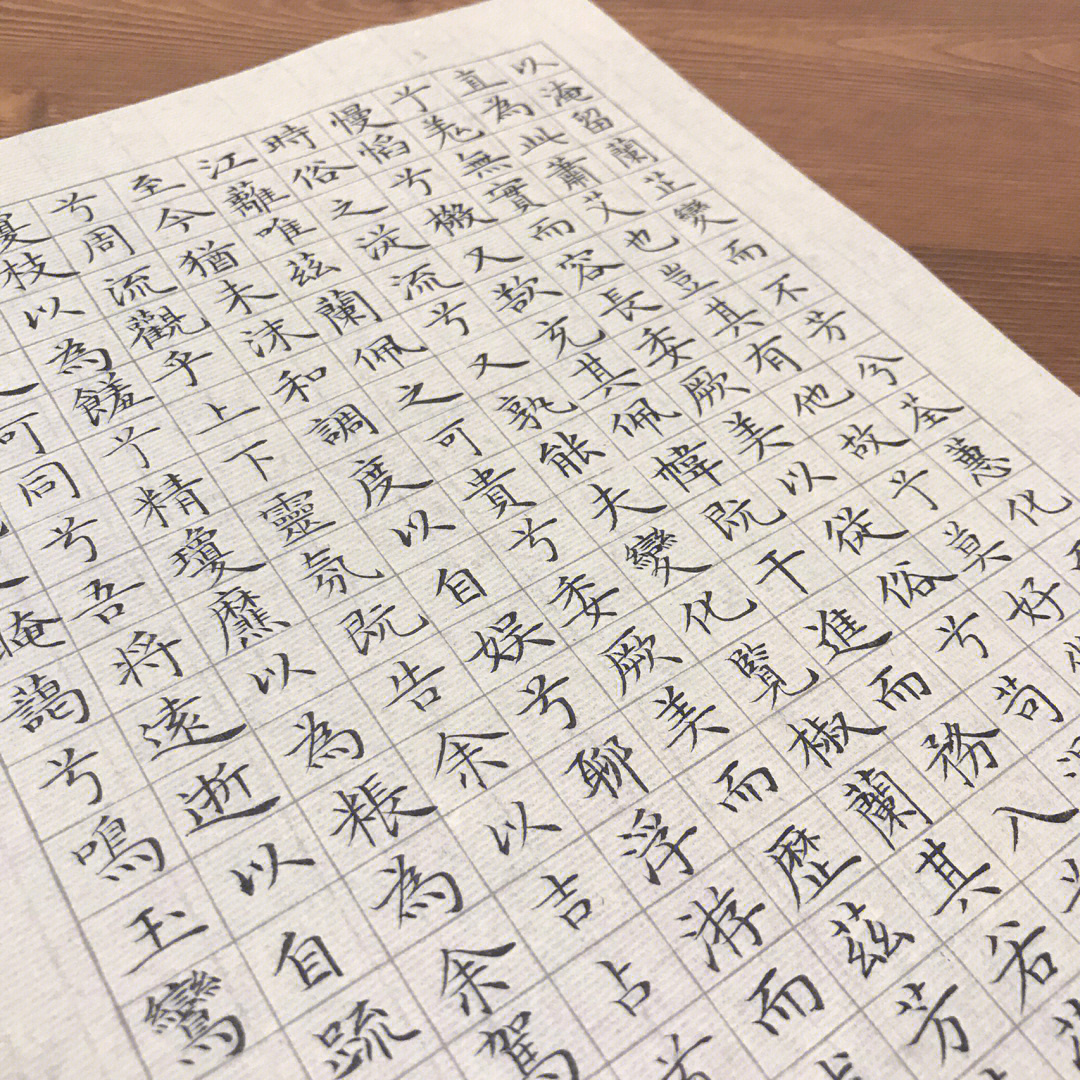 以淹留蘭芷變而不芳兮荃蕙化
直為此蕭艾也豈其有他故兮莫好
兮羌無實而容長委厥美以從俗兮苟
慢慆兮樧又欲充其佩幃既干進而務入
時俗之從流兮又孰能无變化覽椒蘭其若
江離唯茲蘭佩之可貴兮委厥美而歷茲芳
至今猶未沬和調度以自娛兮聊浮游而
兮周流觀乎上下靈氛既告余以吉占兮
枝以為饈兮精瓊爢以為粻為余駕
可同兮吾將遠逝以自疏
晻藹兮鳴玉鸞